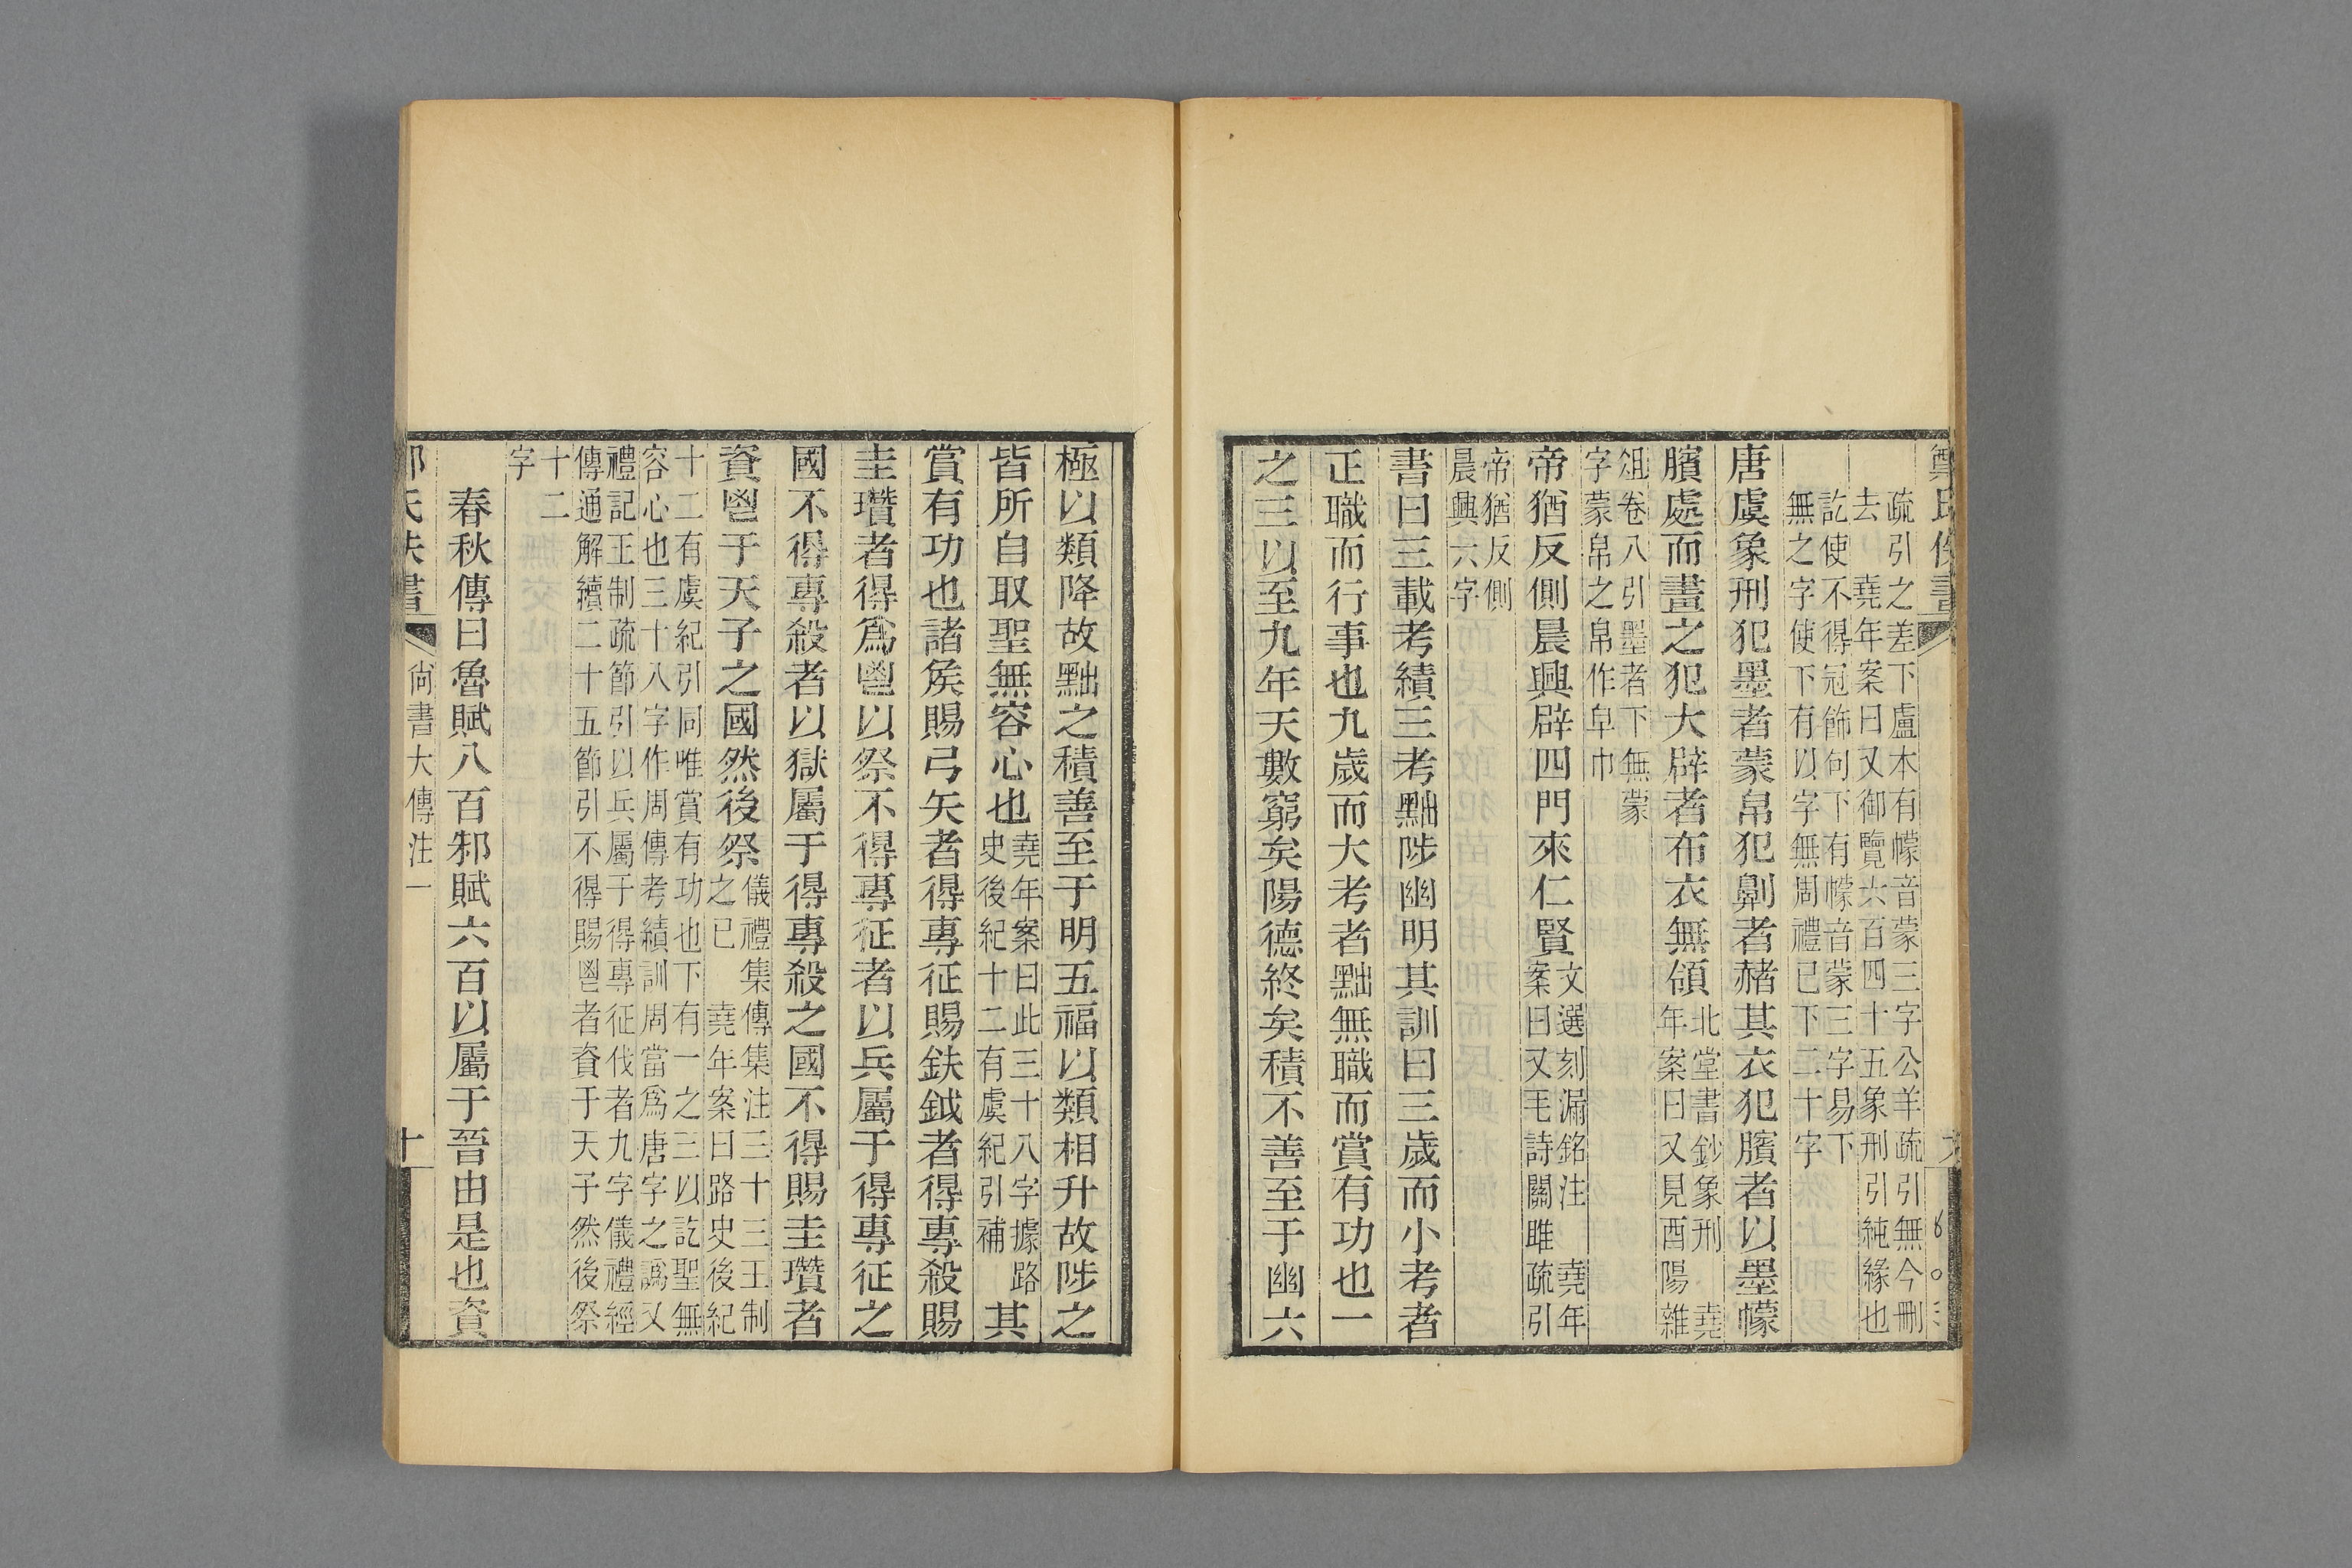 疏引之差下盧本有幪音蒙三字公羊疏引無今刪
去　堯年案曰又御覽六百四十五象刑引純緣也
訖使不得冠飾句下有幪音蒙三字易下
無之字使下有以字無周禮已下二十字
唐虞象刑犯墨者蒙帛犯劓者赭其衣犯臏者以墨幪
臏處而畫之犯大辟者布衣無領
北堂書鈔象刑　堯
年案曰又見酉陽雜
俎卷八引墨者下無蒙
字蒙帛之帛作皁巾
帝猶反側晨興辟四門來仁賢
文選刻漏銘注　堯年
案曰又毛詩關雎疏引
帝猶反側
晨興六字
書曰三載考績三考黜陟幽明其訓曰三歲而小考者
正職而行事也九歲而大考者黜無職而賞有功也一
之三以至九年天數窮矣陽德終矣積不善至于幽六
極以類降故黜之積善至于明五福以類相升故陟之
皆所自取聖無容心也
堯年案曰此三十八字據路
史後紀十二有虞紀引補
其
賞有功也諸矦賜弓矢者得專征賜鈇鉞者得專殺賜
圭瓚者得爲鬯以祭不得專征者以兵屬于得專征之
國不得專殺者以獄屬于得專殺之國不得賜圭瓚者
資鬯于天子之國然後祭
儀禮集傳集注三十三王制
之已　堯年案曰路史後紀
十二有虞紀引同唯賞有功也下有一之三以訖聖無
容心也三十八字作周傳考績訓周當爲唐字之譌又
禮記王制疏節引以兵屬于得專征伐者九字儀禮經
傳通解續二十五節引不得賜鬯者資于天子然後祭
十二
字
春秋傳曰魯賦八百邾賦六百以屬于晉由是也資
尙書大傳注一
十